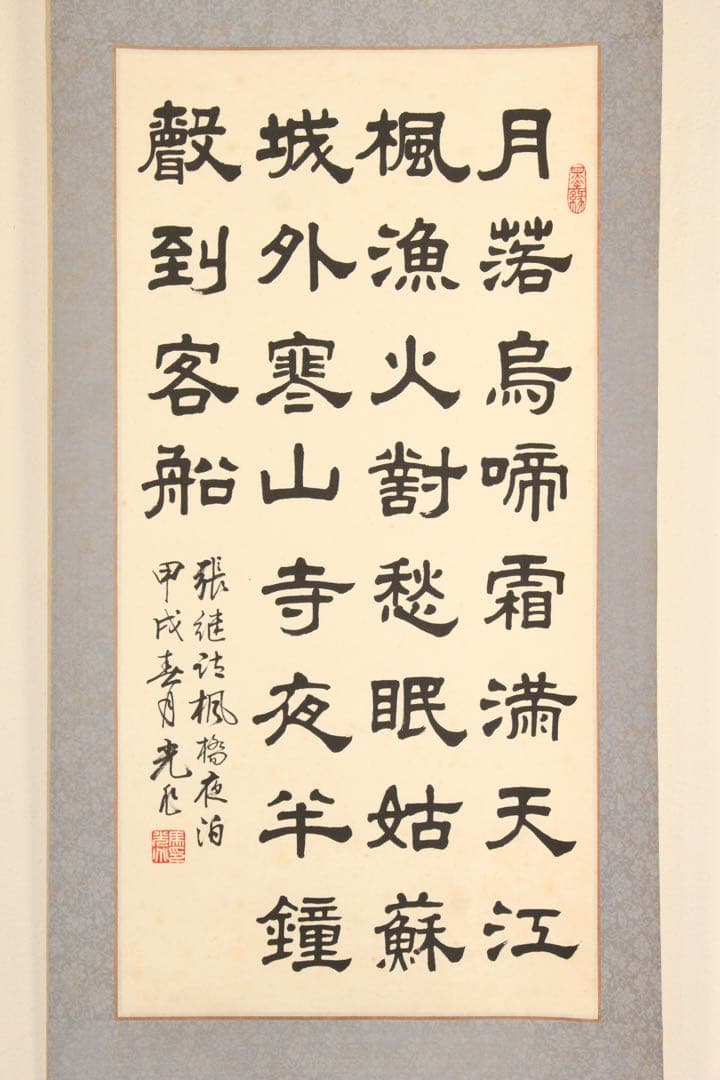 月落烏啼霜滿天江
楓漁火對愁眠姑蘇
城外寒山寺夜半鐘
聲到客船
張继詩楓橋夜泊
甲戌春月光